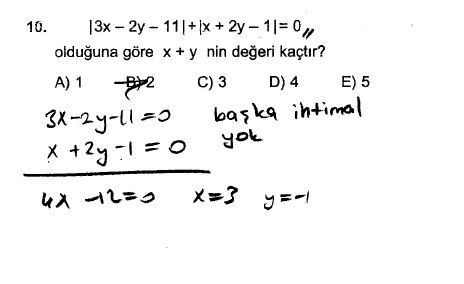 10. |3x – 2y – 11| + |x + 2y – 1| = 0,,
olduğuna göre x + y nin değeri kaçtır?
A) 1 B) 2 C) 3 D) 4 E) 5
3x-2y-11=0 başka ihtimal
x+2y-1=0 yok
4x-12=0 x=3 y=-1